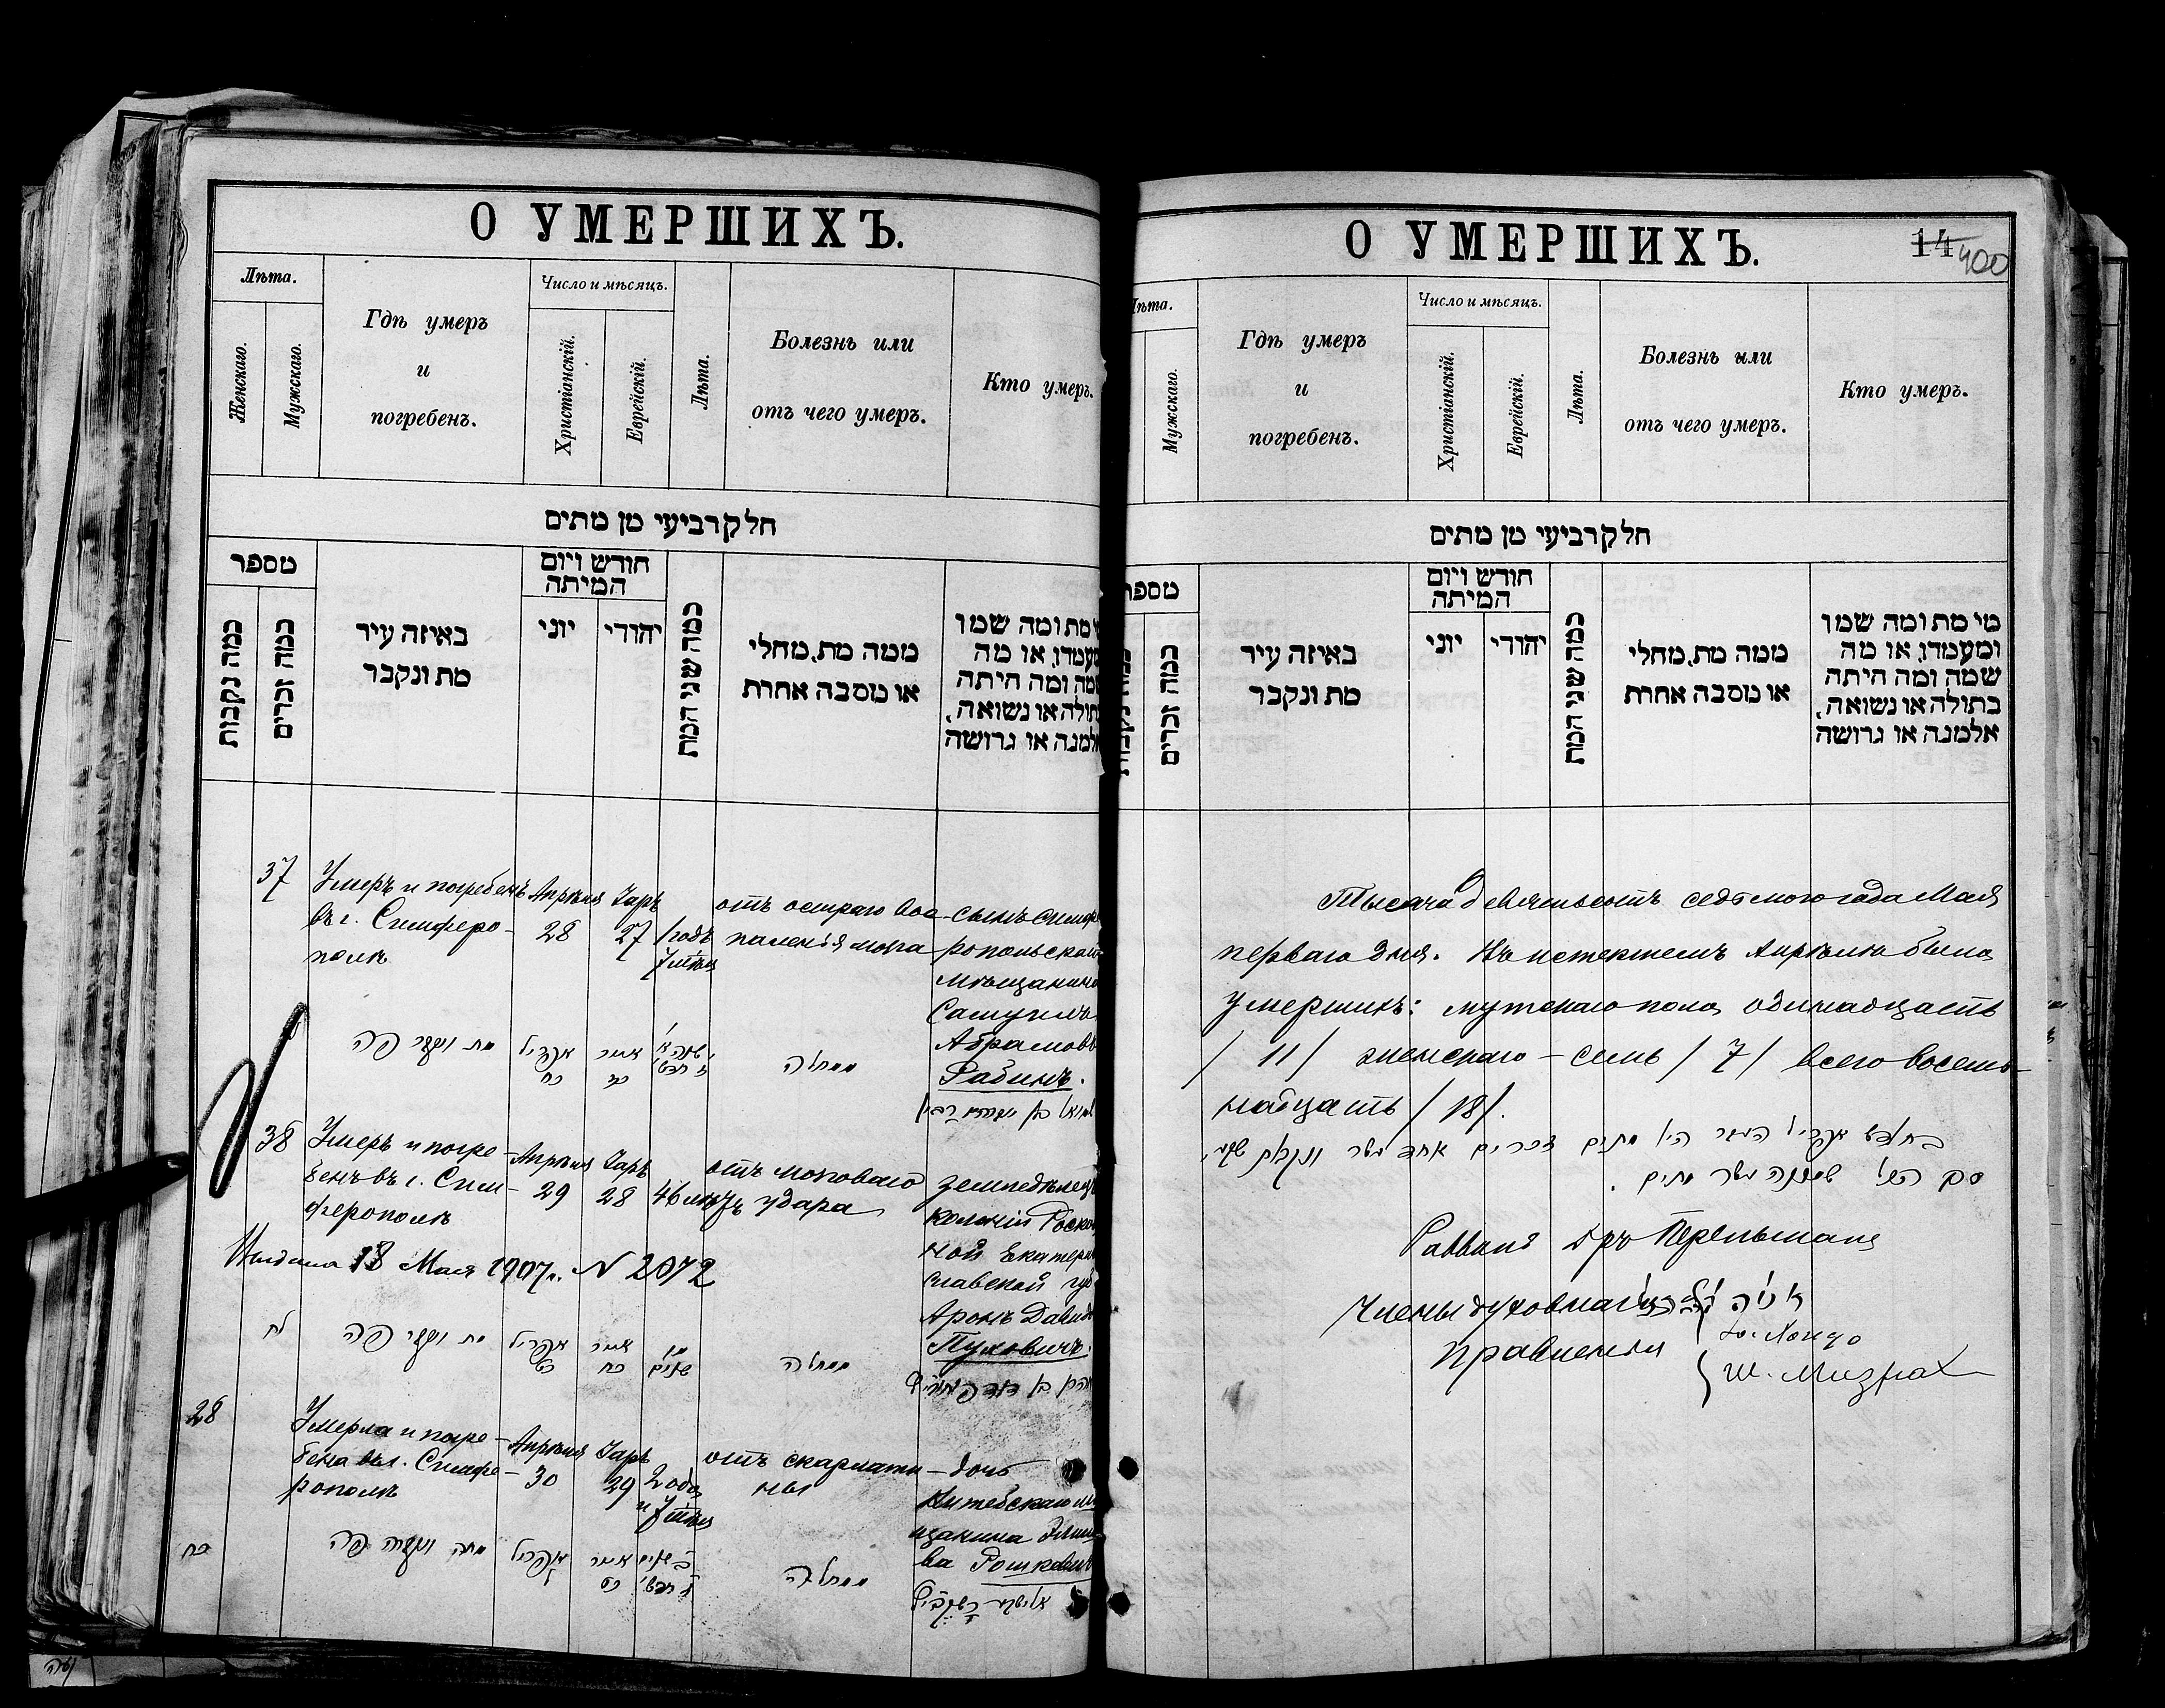 О УМЕРШИХЪ.
Лѣта.
Женскаго.
Мужскаго.
Гдѣ умеръ
и
погребенъ.
Число и мѣсяцъ.
Христіанскій.
Еврейскій.
Лѣта.
Болезнь или
отъ чего умеръ.
Кто умеръ.
חלק רביעי מן מתים
מספר
כמה נקבות
כמה זכרים
באיזה עיר
מת ונקבר
חודש ויום
המיתה
יוני
יהודי
כמה שני המת
ממה מת, מחלי
או מסבה אחרת
מת ומה שמו
ומה היתה
או נשואה,
או גרושה
37
Умеръ и погребенъ
въ г. Симферо-
полѣ
Апрѣля
28
Іаръ
27
1 годъ
7 мѣсяц
отъ остраго вос-
паленія мозга
сынъ симфе
ропольскаго
мѣщанина
Самуилъ
Абрамовъ
Рабинъ.
מת ונקבר פה
אפריל
כח
אייר
מחלה
38
Умеръ и погре-
бенъ въ г. Сим-
ферополѣ
Апрѣля
29
Іаръ
28
46 лѣтъ
отъ мозговаго
удара
земледѣлецъ
колоніи Роско
ной Екатерино
славской губ
Аронъ Давидо
Пуховичъ.
Выдана 18 Мая 1907 г. N 2072
לח
מת ונקבר פה
אפריל
כט
אייר
כח
מו
שנים
מחלה
28
Умерла и погре-
бена въ г. Симфе-
рополѣ
Апрѣля
30
Іаръ
29
2 года
и 7 мѣсяц
отъ скарлати-
ны
дочь
Витебскаго мѣ
щанина
ва Рошкович
כח
מתה ונקברה פה
אפריל
ל
אייר
כט
ב שנים
ז חדשי
מחלה
О УМЕРШИХЪ.
14 400
Лѣта.
Мужскаго.
Гдѣ умеръ
и
погребенъ.
Число и мѣсяцъ.
Христіанскій.
Еврейскій.
Лѣта.
Болезнь или
отъ чего умеръ.
Кто умеръ.
חלק רביעי מן מתים
מספר
כמה זכרים
באיזה עיר
מת ונקבר
חודש ויום
המיתה
יוני
יהודי
כמה שני המת
ממה מת, מחלי
או מסבה אחרת
מי מת ומה שמו
ומעמדו, או מה
שמה ומה היתה
בתולה או נשואה,
אלמנה או גרושה
Тысяча девятьсотъ седьмого года Мая
перваго дня. Въ истекшемъ Апрѣлѣ было
умершихъ: мужскаго пола одинадцать
/ 11 / женскаго – семь / 7 / всего восем-
надцать / 18 /.
בחדש אפריל היו מתים זכרים אחד עשר ונקבות שבע,
סך הכל שמונה עשר מתים.
Раввинъ Д-ръ Перельманъ
Члены духовнаго
Правленія
Ш. Мизрах